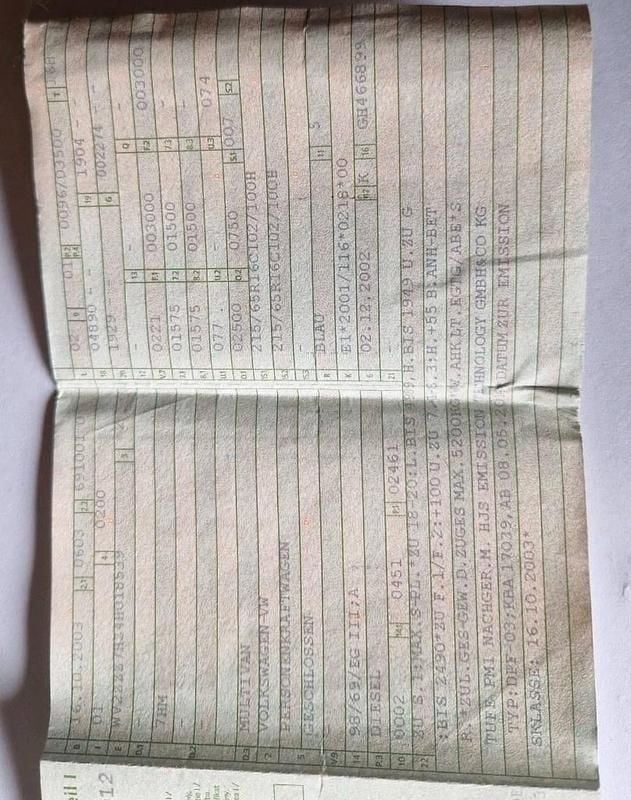 B 16.10.2003 2.1 0603 2.2 691001
J 01 4 0200
E
D.1
D.2 7HM
-
-
D.3 MULTIVAN
2 VOLKSWAGEN-VW
5 PERSONENKRAFTWAGEN
GESCHLOSSEN
V.9 98/69/EG III;A
14 DIESEL
P.3
10 0002 14.1 0451 P.1 02461
L 02 9 01 P.2 P.4 0096/03500 T
18 04890 - - 19 1904 -
20 1929 - - G 002274 - -
12 - 13 - Q -
V.7 0221 F.1 003000 F.2 003000
7.1 01575 7.2 01500 7.3 -
8.1 01575 8.2 01500 8.3 -
U.1 077 U.2 - U.3 074
O.1 02500 O.2 0750 S.1 007 S.2 -
15.1 215/65R16C102/100H
15.2 215/65R16C102/100H
15.3 -
R BLAU 11 5
K E1*2001/116*0218*00
6 02.12.2002 17 K 16 GH466899
21 -
22 ZU S.1:MAX.S-PL.*ZU 18-20:L.BIS H:BIS 1949 U.ZU G
:BIS 2490*ZU F.1/F.2:+100 U.ZU +55 B.ANH-BET
R.*ZUL.GES-GEW.D.ZUGES MAX. AHK LT.EGTG/ABE*S
TUFE PM1 NACHGER.M. HJS EMISSION TECHNOLOGY GMBH&CO KG
TYP:DPF-03;KBA 17039,AB 08.05. DATUM ZUR EMISSION
SKLASSE: 16.10.2003*
eil I
12